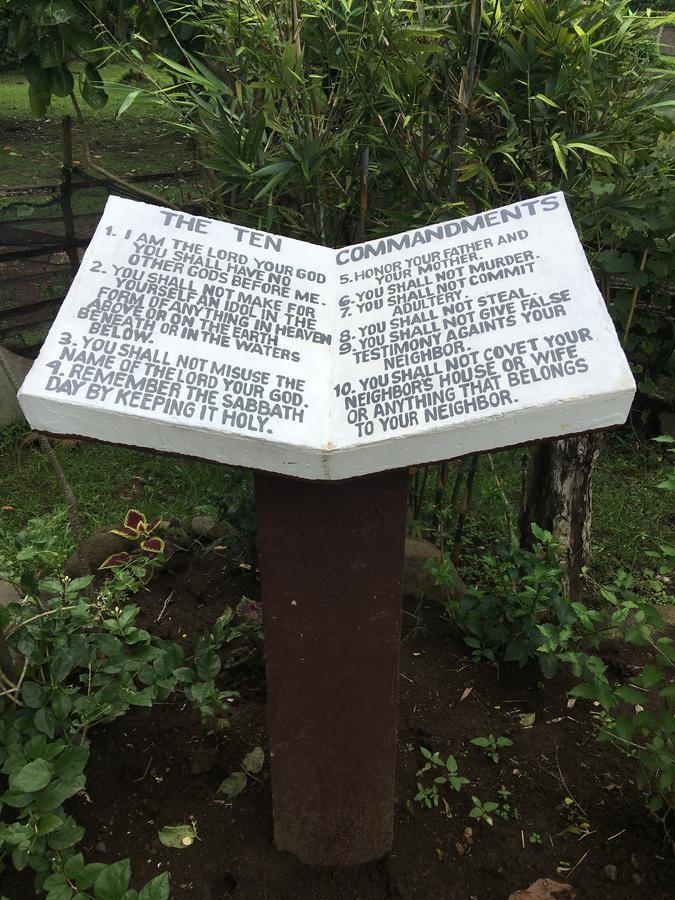 THE TEN
1. I AM THE LORD YOUR GOD
YOU SHALL HAVE NO
OTHER GODS BEFORE ME.
2. YOU SHALL NOT MAKE FOR
YOURSELF AN IDOL IN THE
FORM OF ANYTHING IN HEAVEN
ABOVE OR ON THE EARTH
BENEATH OR IN THE WATERS
BELOW.
3. YOU SHALL NOT MISUSE THE
NAME OF THE LORD YOUR GOD.
4. REMEMBER THE SABBATH
DAY BY KEEPING IT HOLY.
COMMANDMENTS
5. HONOR YOUR FATHER AND
YOUR MOTHER.
6. YOU SHALL NOT MURDER.
7. YOU SHALL NOT COMMIT
ADULTERY.
8. YOU SHALL NOT STEAL.
9. YOU SHALL NOT GIVE FALSE
TESTIMONY AGAINTS YOUR
NEIGHBOR.
10. YOU SHALL NOT COVET YOUR
NEIGHBOR'S HOUSE OR WIFE
OR ANYTHING THAT BELONGS
TO YOUR NEIGHBOR.